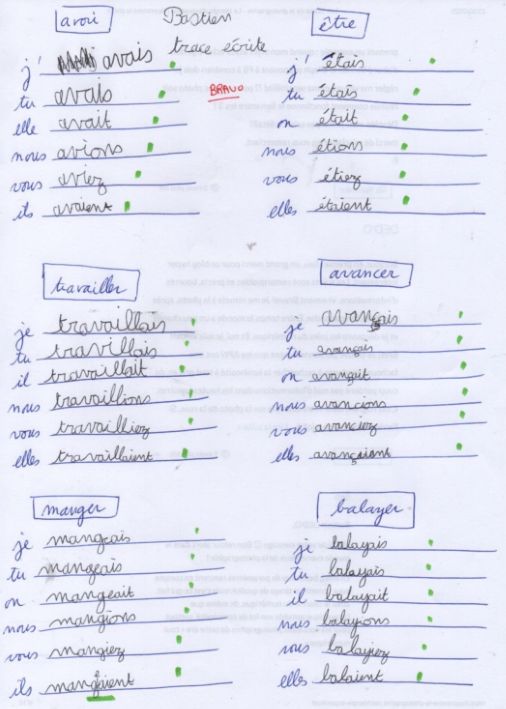 avoir
Bastien
trace écrite
j' avais
tu avais
BRAVO
elle avait
nous avions
vous aviez
ils avaient
être
j' étais
tu étais
on était
nous étions
vous étiez
elles étaient
travailler
je travaillais
tu travillais
il travaillait
nous travaillions
vous travailliez
elles travaillaient
avancer
je avançais
tu avançais
on avançait
nous avancions
vous avanciez
elles avançaient
manger
je mangeais
tu mangeais
on mangeait
nous mangions
vous mangiez
ils mangeaient
balayer
je balayais
tu balayais
il balayait
nous balayions
vous balayiez
elles balaient